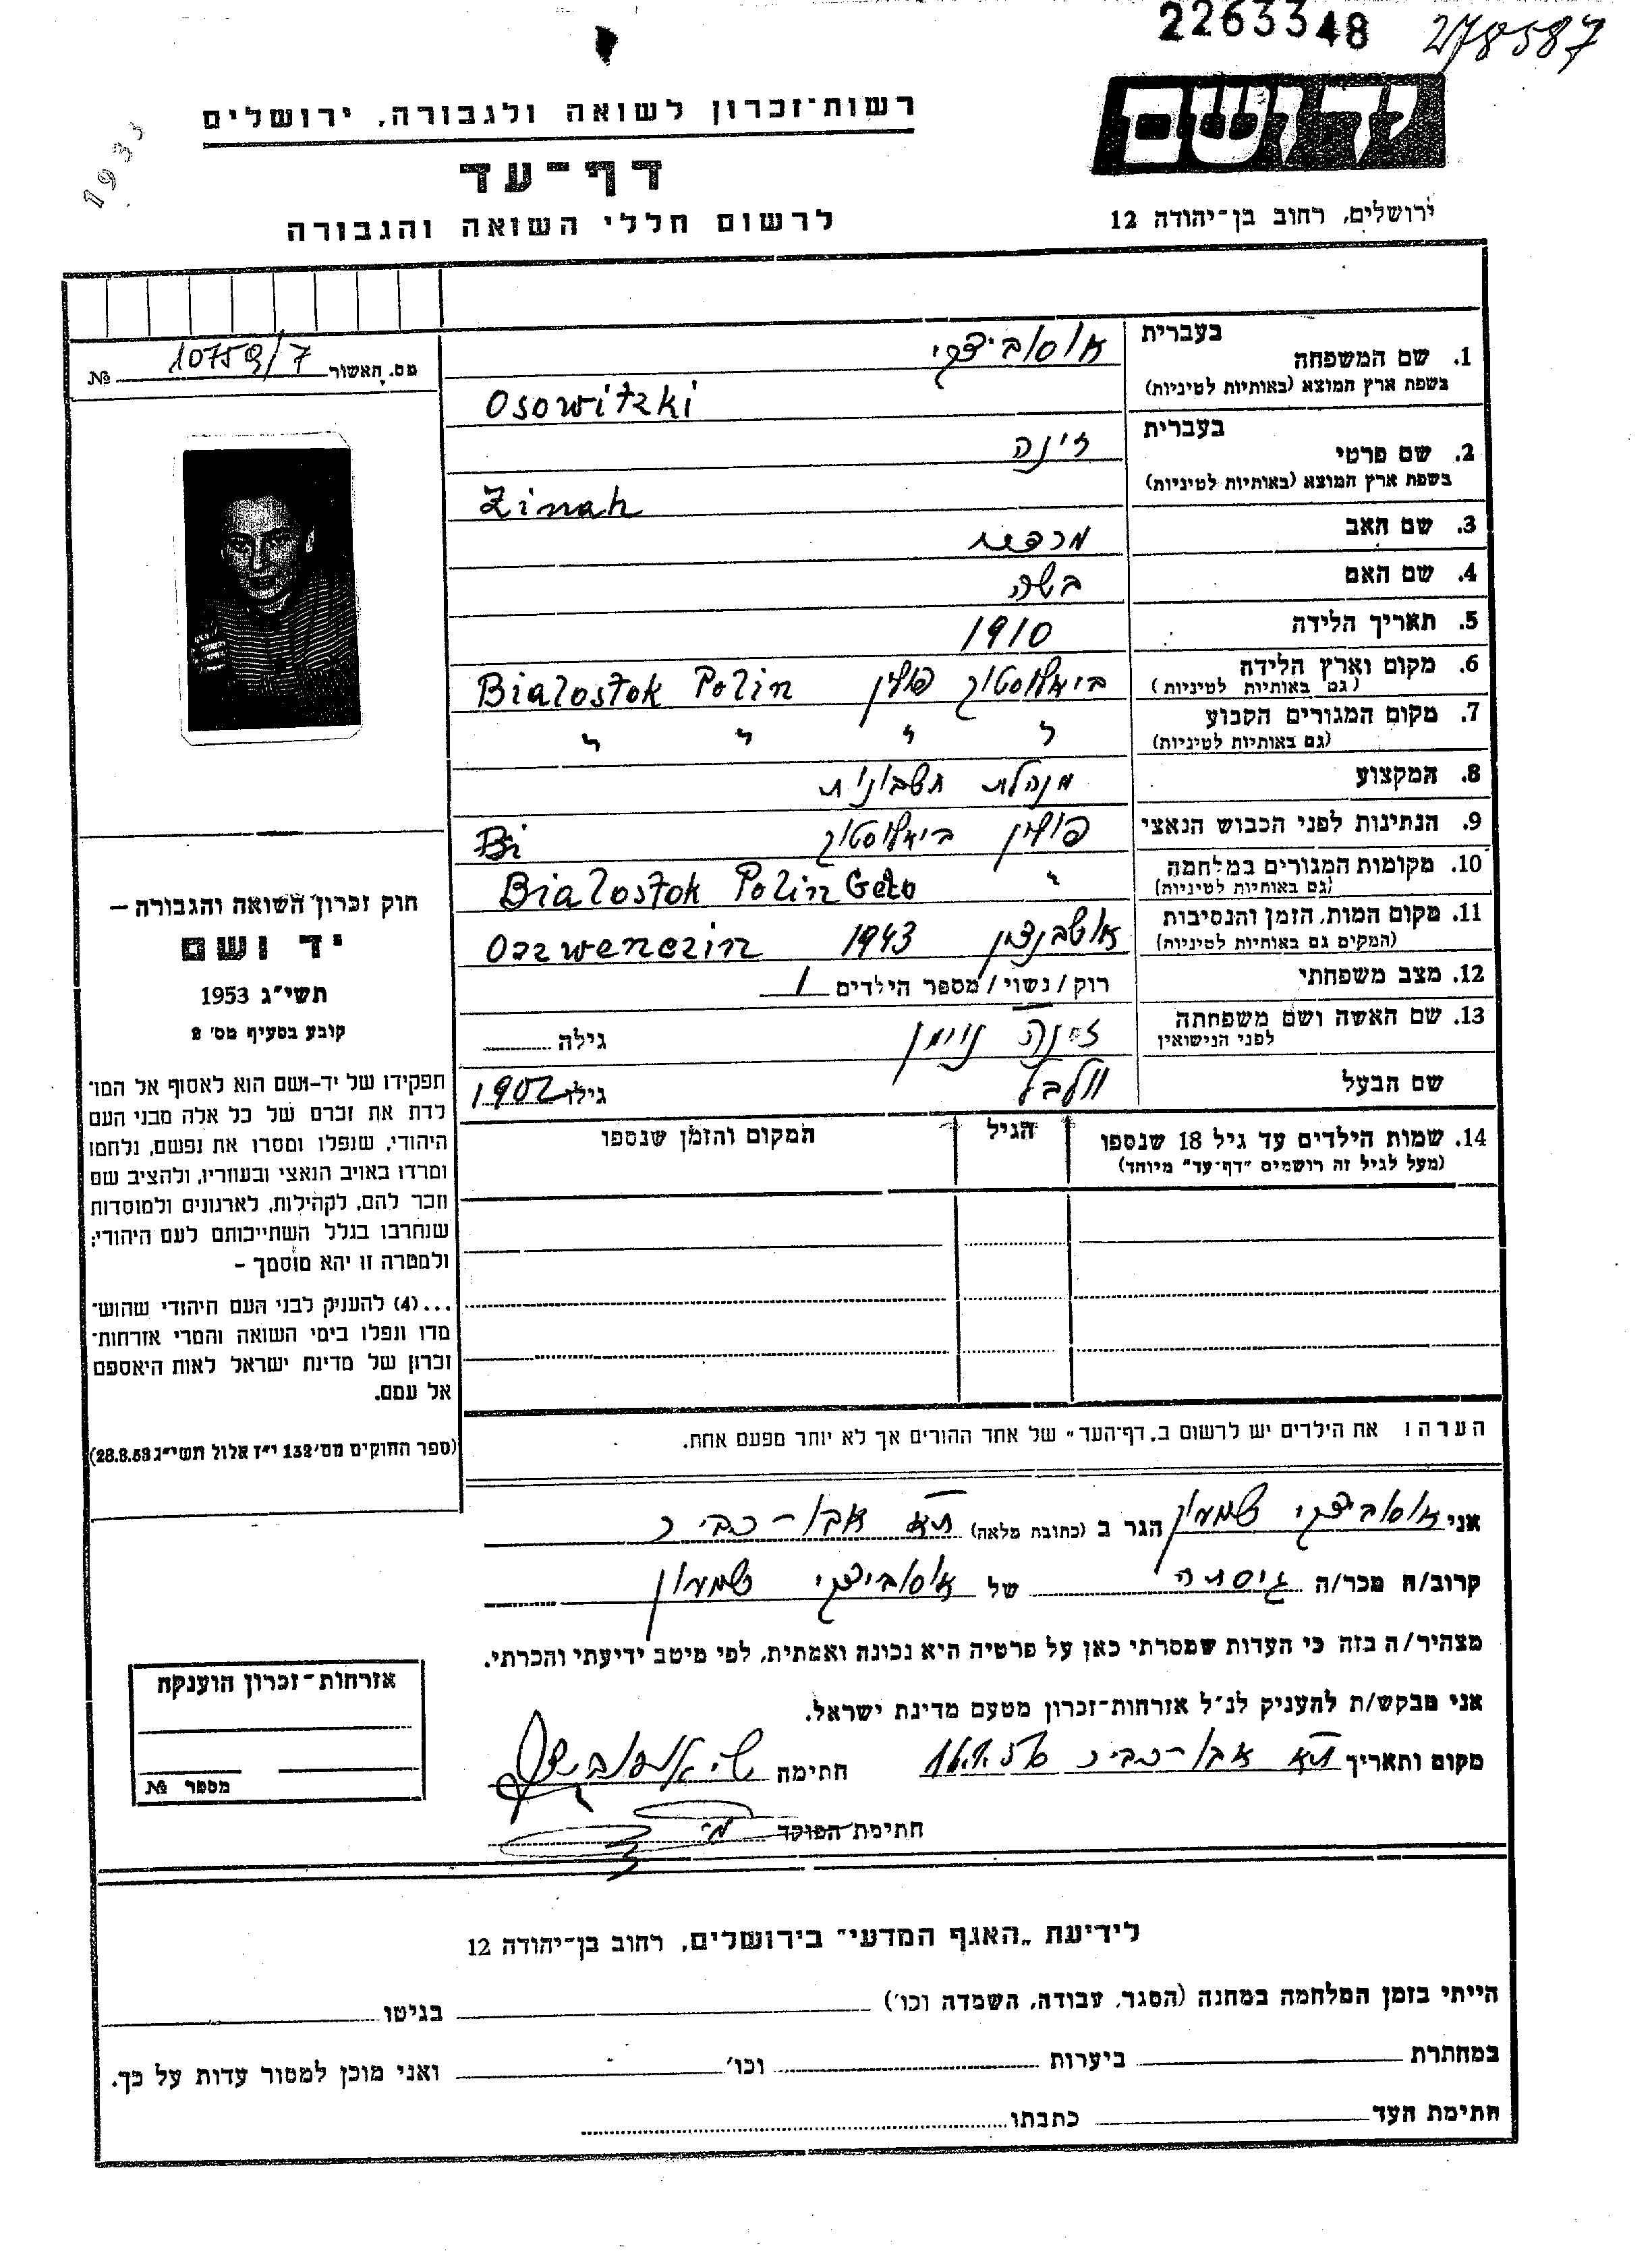 2263348
278587
1933
ידושם
ירושלים, רחוב בן־יהודה 12
רשות־זכרון לשואה ולגבורה, ירושלים
דף־עד
לרשום חללי השואה והגבורה
מס. האשור 10759/7 №
בעברית
1. שם המשפחה אוסוביצקי
בשפת ארץ המוצא (באותיות לטיניות) Osowitzki
בעברית
2. שם פרטי זינה
בשפת ארץ המוצא (באותיות לטיניות) Zinah
3. שם האב מרכוס
4. שם האם בשה
5. תאריך הלידה 1910
6. מקום וארץ הלידה ביאלוסטוק פולין Bialostok Polin
(גם באותיות לטיניות)
7. מקום המגורים הקבוע " " " "
(גם באותיות לטיניות)
8. המקצוע מנהלת חשבונות
9. הנתינות לפני הכבוש הנאצי פולין ביאלוסטוק Bi
10. מקומות המגורים במלחמה " Bialostok Polin Geto
(גם באותיות לטיניות)
11. מקום המות, הזמן והנסיבות אושבנצין 1943 Oszwenczin
(המקום גם באותיות לטיניות)
12. מצב משפחתי רוק / נשוי / מספר הילדים 1
13. שם האשה ושם משפחתה זינה נוימן גילה
לפני הנישואין
שם הבעל וולבל גילו 1902
14. שמות הילדים עד גיל 18 שנספו הגיל המקום והזמן שנספו
(מעל לגיל זה רושמים "דף־עד" מיוחד)
הערה: את הילדים יש לרשום ב„דף־העד" של אחד ההורים אך לא יותר מפעם אחת.
חוק זכרון השואה והגבורה —
יד ושם
תשי"ג 1953
קובע בסעיף מס' 2
תפקידו של יד-ושם הוא לאסוף אל המו־
לדת את זכרם של כל אלה מבני העם
היהודי, שנפלו ומסרו את נפשם, נלחמו
ומרדו באויב הנאצי ובעוזריו, ולהציב שם
וזכר להם, לקהילות, לארגונים ולמוסדות
שנחרבו בגלל השתייכותם לעם היהודי;
ולמטרה זו יהא מוסמך –
...(4) להעניק לבני העם היהודי שהוש־
מדו ונפלו בימי השואה והמרי אזרחות־
זכרון של מדינת ישראל לאות היאספם
אל עמם.
(ספר החוקים מס' 132 י"ז אלול תשי"ג 28.8.53)
אני אוסוביצקי שמעון הגר ב (כתובת מלאה) ת"א אבו-כביר
קרוב/ה מכר/ה גיסתה של אוסוביצקי שמעון
מצהיר/ה בזה כי העדות שמסרתי כאן על פרטיה היא נכונה ואמתית, לפי מיטב ידיעתי והכרתי.
אני מבקש/ת להעניק לנ"ל אזרחות־זכרון מטעם מדינת ישראל.
מקום ותאריך ת"א אבו-כביר חתימה
חתימת הפוקד
אזרחות־זכרון הוענקה
מספר №
לידיעת „האגף המדעי" בירושלים, רחוב בן־יהודה 12
הייתי בזמן המלחמה במחנה (הסגר, עבודה, השמדה וכו') בגיטו
במחתרת ביערות וכו' ואני מוכן למסור עדות על כך.
חתימת העד כתבתו